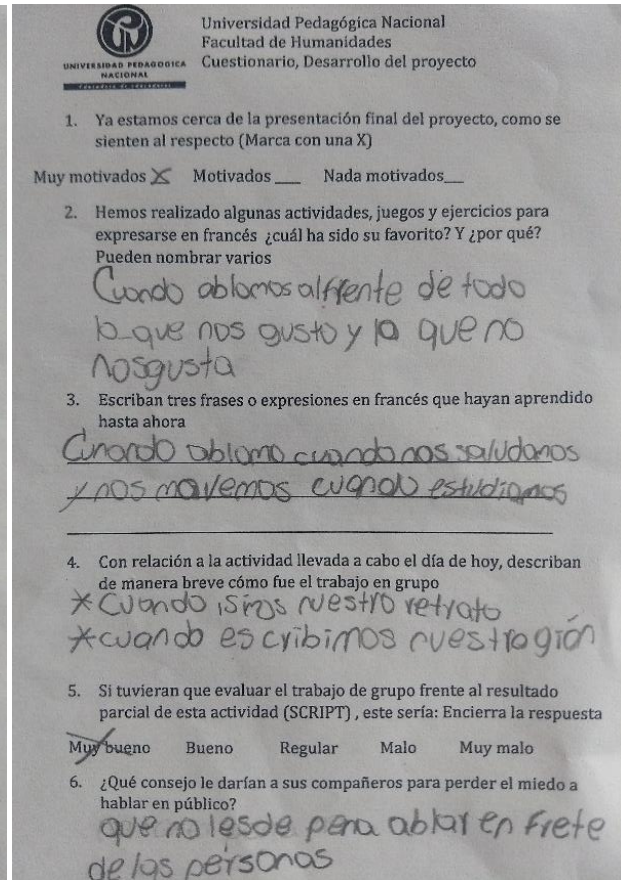 Universidad Pedagógica Nacional
Facultad de Humanidades
UNIVERSIDAD PEDAGOGICA
NACIONAL
Cuestionario, Desarrollo del proyecto
1. Ya estamos cerca de la presentación final del proyecto, como se
sienten al respecto (Marca con una X)
Muy motivados X Motivados ___ Nada motivados__
2. Hemos realizado algunas actividades, juegos y ejercicios para
expresarse en francés ¿cuál ha sido su favorito? Y ¿por qué?
Pueden nombrar varios
Cuondo ablamos alfrente de todo
lo que nos gusto y lo que no
nosgusta
3. Escriban tres frases o expresiones en francés que hayan aprendido
hasta ahora
ablamo cuando nos saludanos
y nos mavemos cuando estudiamos
4. Con relación a la actividad llevada a cabo el día de hoy, describan
de manera breve cómo fue el trabajo en grupo
* Cuando isimos nuestro retrato
* cuando escribimos nuestro gión
5. Si tuvieran que evaluar el trabajo de grupo frente al resultado
parcial de esta actividad (SCRIPT) , este sería: Encierra la respuesta
Muy bueno Bueno Regular Malo Muy malo
6. ¿Qué consejo le darían a sus compañeros para perder el miedo a
hablar en público?
que no lesde pena ablar en frete
de las personas